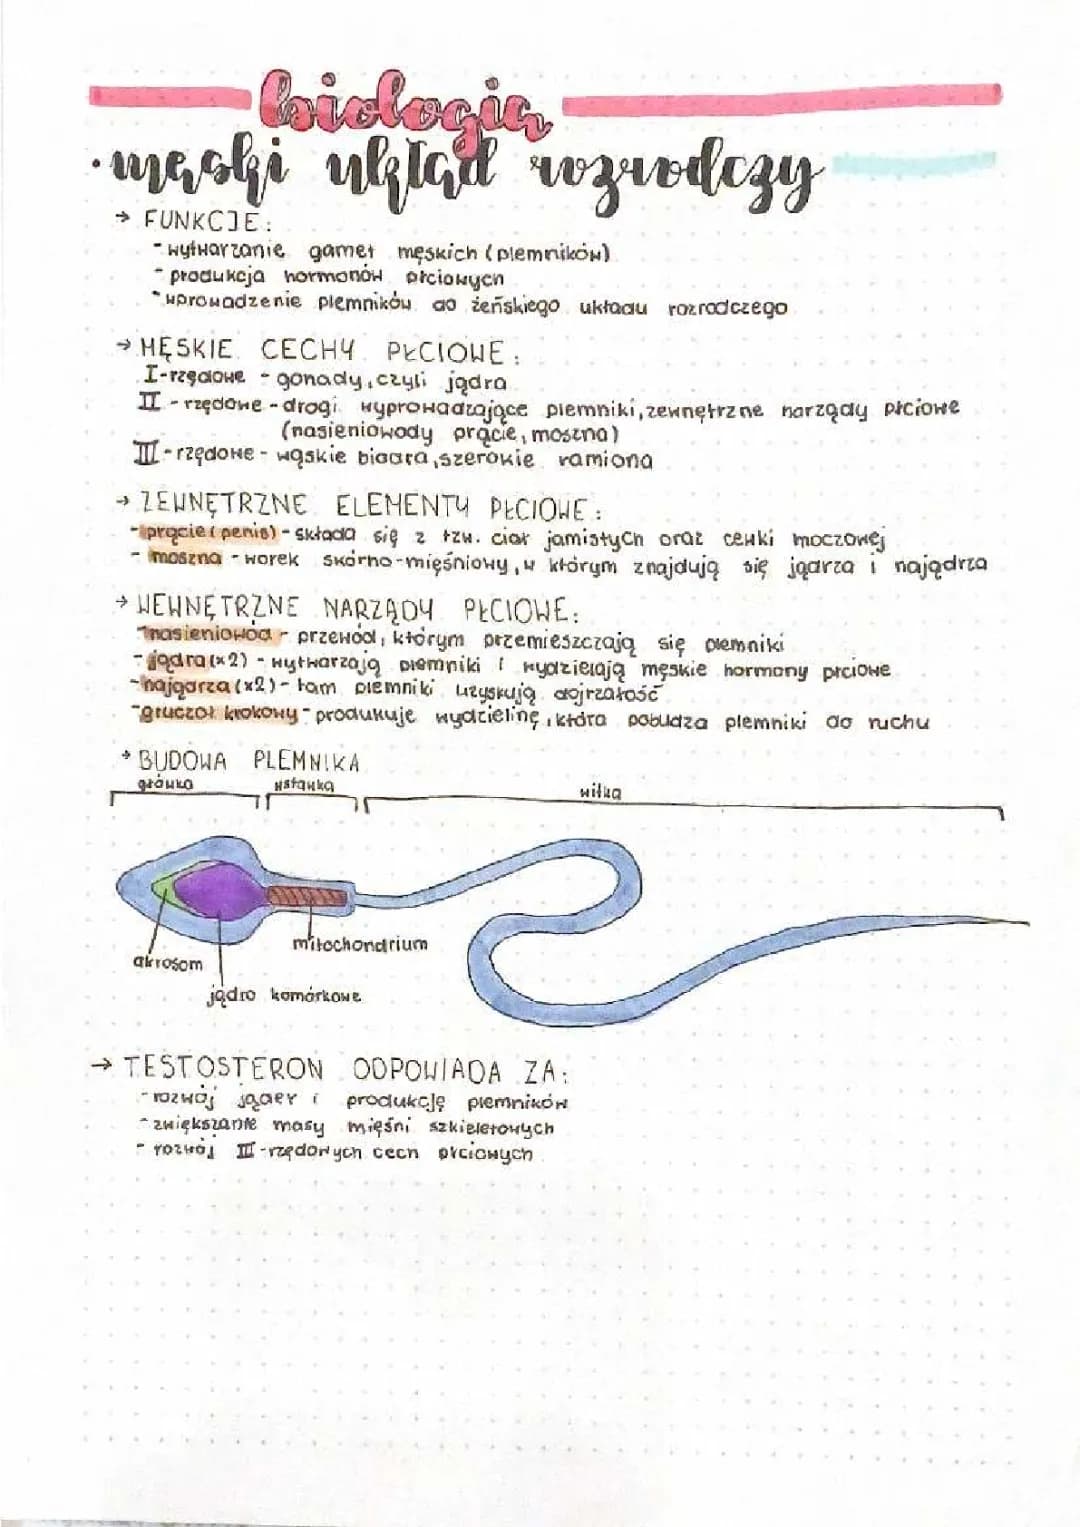 biologia
• męski układ rozrodczy
→ FUNKCJE:
- wytwarzanie gamet męskich (plemników)
- produkcja hormonów płciowych
- wprowadzenie plemników do żeńskiego układu rozrodczego
→ MĘSKIE CECHY PŁCIOWE:
I-rzędowe - gonady, czyli jądra
II-rzędowe - drogi wyprowadzające plemniki, zewnętrzne narządy płciowe
(nasieniowody prącie, moszna)
III-rzędowe - wąskie biodra, szerokie ramiona
→ ZEWNĘTRZNE ELEMENTY PŁCIOWE:
- prącie (penis) - składa się z tzw. ciał jamistych oraz cewki moczowej
- moszna - worek skórno-mięśniowy, w którym znajdują się jądrza i najądrza
→ WEWNĘTRZNE NARZĄDY PŁCIOWE:
- nasieniowód - przewód, którym przemieszczają się plemniki
- jądra (x2) - wytwarzają plemniki i wydzielają męskie hormony płciowe
- najądrza (x2) - tam plemniki uzyskują dojrzałość
- gruczoł krokowy - produkuje wydzielinę, która pobudza plemniki do ruchu
→ BUDOWA PLEMNIKA
główka wstawka witka
mitochondrium
akrosom
jądro komórkowe
→ TESTOSTERON ODPOWIADA ZA:
- rozwój jąder i produkcję plemników
- zwiększanie masy mięśni szkieletowych
- rozwój III-rzędowych cech płciowych